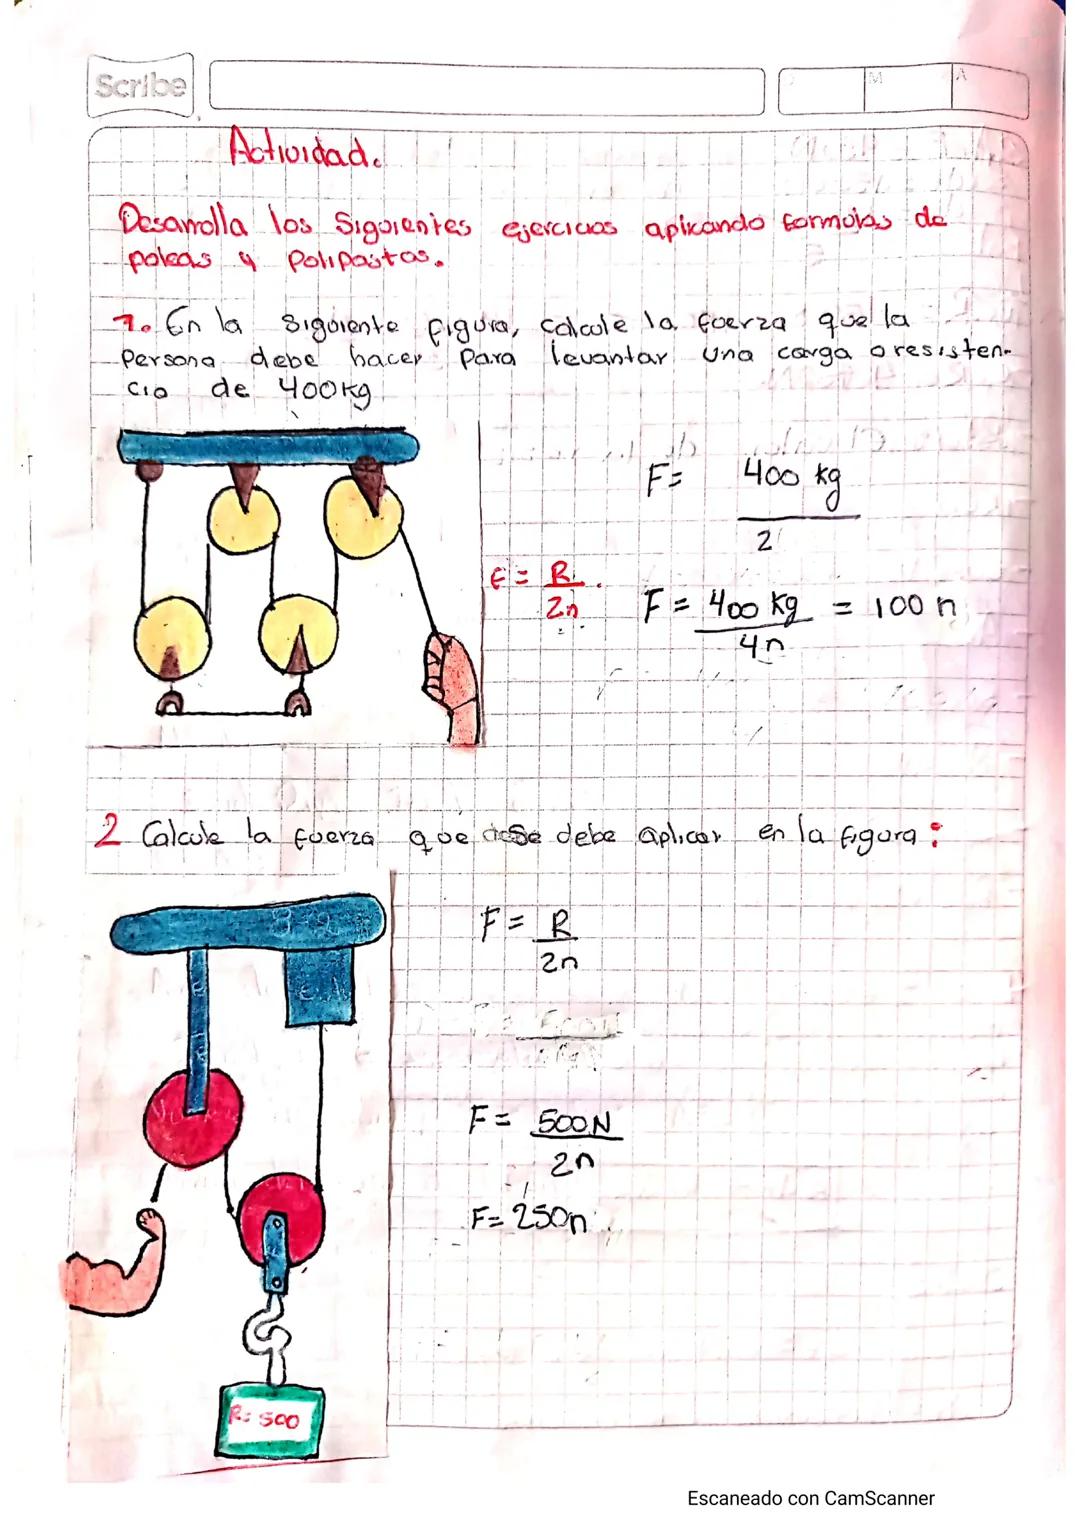 Scribe
M
A
Actividad.
Desarrolla los Siguientes ejercicios aplicando formulas de
poleas y Polipastos.
1. En la siguiente figura, calcule la fuerza que la
Persona debe hacer para levantar una carga o resisten-
cia de 400kg
F= 400 kg
2
F = R
2n
F = 400 kg = 100 n
4n
2 Calcule la fuerza que se debe aplicar en la figura:
F = R
2n
F = 500N
2n
F= 250n
R: 500
Escaneado con CamScanner